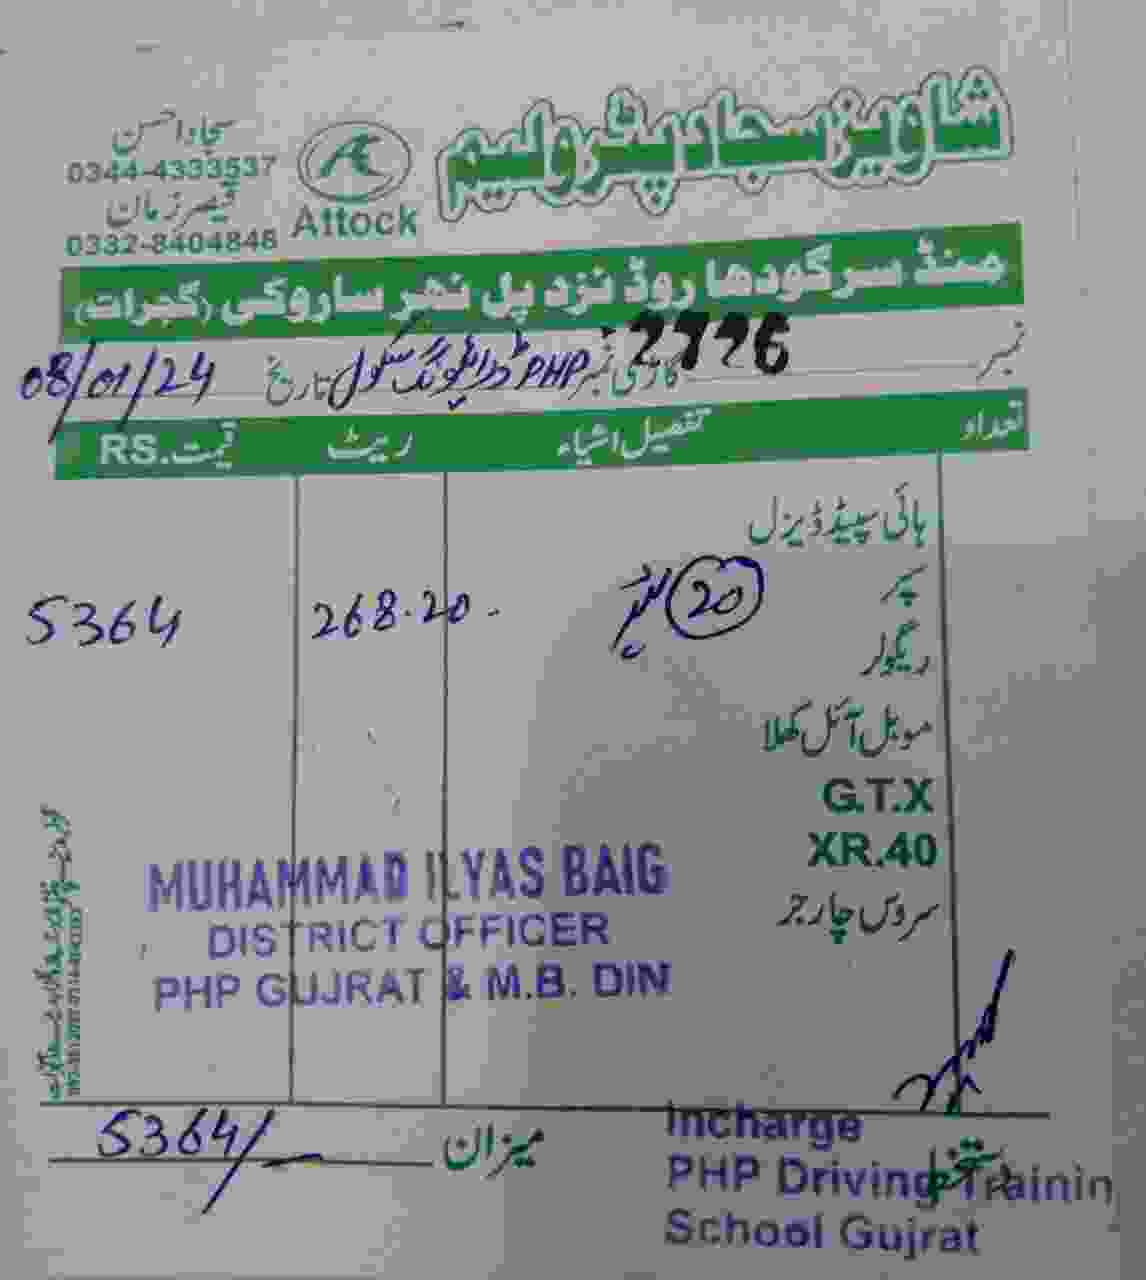 شاویز سجاد پٹرولیم
Attock
سجاد احسن
0344-4333537
قیصر زمان
0332-8404848
منڈ سرگودھا روڈ نزد پل نهر ساروکی (گجرات)
نمبر 2726 گاڑی نمبر PHP ڈرائیونگ سکول تاریخ 08/01/24
تعداد تفصیل اشیاء ریٹ قیمت .RS
ہائی سپیڈ ڈیزل
سپر 20 لیٹر 268.20 5364
ریگولر
موبل آئل کھلا
G.T.X
XR.40
سروس چارجز
MUHAMMAD ILYAS BAIG
DISTRICT OFFICER
PHP GUJRAT & M.B. DIN
میزان 5364/
دستخط
Incharge
PHP Driving Trainin
School Gujrat